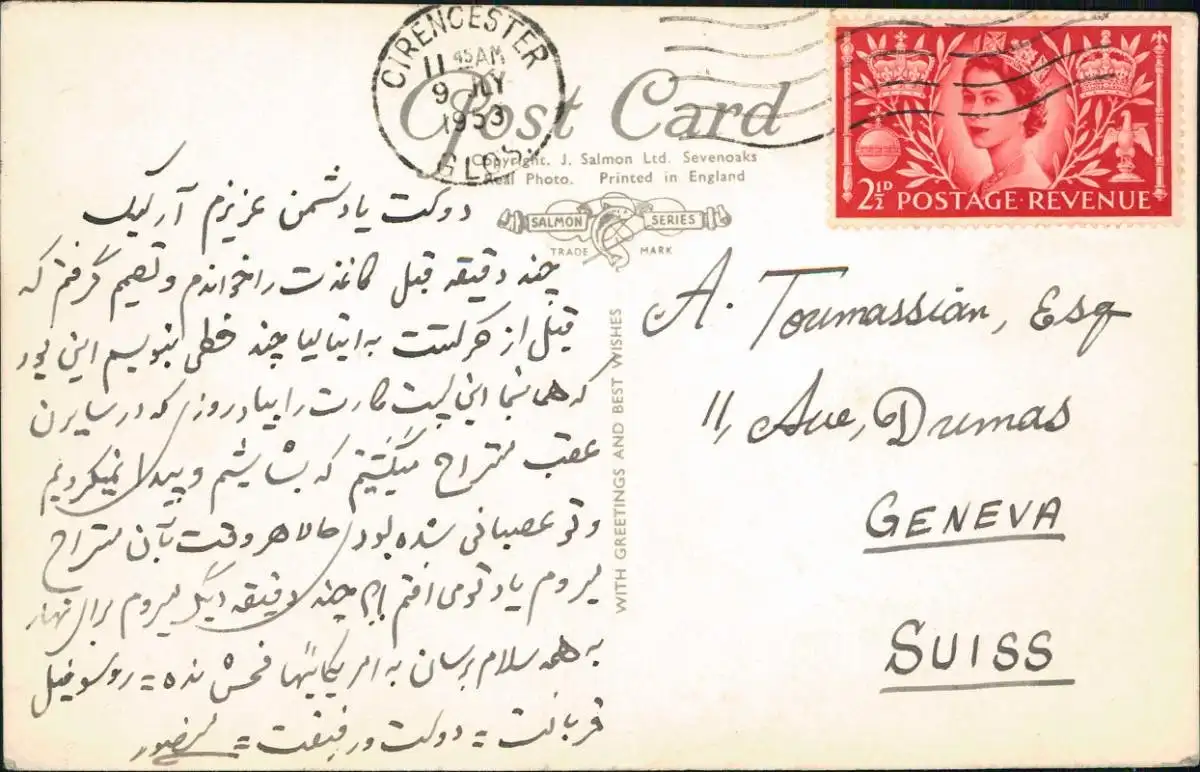 CIRENCESTER
11 45 AM
9 JLY
1953
GLOS.
Post Card
Copyright. J. Salmon Ltd. Sevenoaks
Real Photo. Printed in England
SALMON SERIES
TRADE MARK
2½D POSTAGE·REVENUE
WITH GREETINGS AND BEST WISHES
دوست یا دشمن عزیزم آرلیک
چند دقیقه قبل کاغذت را خواندم و تصمیم گرفتم که
قبل از حرکتت به ایتالیا چند خطی بنویسم این بود
که همینجا این پست کارت را بیاد روزی که در سایرن
عقب مستراح میگشتیم که بشاشیم و پیدا نمیکردیم
و تو عصبانی شده بودی حالا هر وقت بآن مستراح
میروم یاد تو می افتم !؟ چند دقیقه دیگر میروم برای نهار
به همه سلام برسان به امریکائیها فحش نده =
قربانت = دوست و رفیقت = منصور
A. Toumassian, Esq
11, Ave, Dumas
GENEVA
SUISS